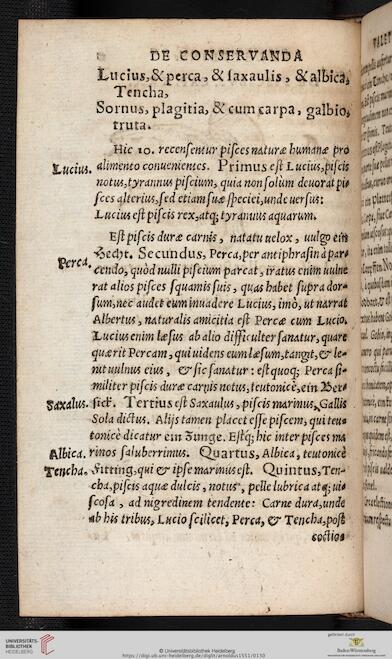 DE CONSERVANDA
Lucius, & perca, & saxaulis, & albica,
Tencha,
Sornus, plagitia, & cum carpa, galbio,
truta.
Hic 10. recensentur pisces naturæ humanæ pro
Lucius.
alimento conuenientes. Primus est Lucius, piscis
notus, tyrannus piscium, quia non solùm deuorat pi
sces alterius, sed etiam suæ speciei, unde uersus:
Lucius est piscis rex, atq; tyrannus aquarum.
Est piscis duræ carnis, natatu uelox, uulgo ein
Perca.
Hecht. Secundus, Perca, per antiphrasin à par
cendo, quòd nulli piscium parcat, iratus enim uulne
rat alios pisces squamis suis, quas habet supra dor
sum, nec audet eum inuadere Lucius, imò, ut narrat
Albertus, naturalis amicitia est Percæ cum Lucio.
Lucius enim læsus ab alio difficulter sanatur, quare
quærit Percam, qui uidens eum læsum, tangit, & le
nit uulnus eius, & sic sanatur: est quoq; Perca si
militer piscis duræ carnis notus, teutonicè, ein Ber
Saxalus.
sick. Tertius est Saxaulus, piscis marinus, Gallis
Sola dictus. Alijs tamen placet esse piscem, qui teu
tonicè dicatur ein Zunge. Estq; hic inter pisces ma
Albica.
rinos saluberrimus. Quartus, Albica, teutonicè
Tencha.
Fitting, qui & ipse marinus est. Quintus, Ten-
cha, piscis aquæ dulcis, notus, pelle lubrica atq; ui
scosa, ad nigredinem tendente: Carne dura, unde
ab his tribus, Lucio scilicet, Perca, & Tencha, post
coctio-
VALET
UNIVERSITÄTS-
BIBLIOTHEK
HEIDELBERG
© Universitätsbibliothek Heidelberg
https://digi.ub.uni-heidelberg.de/diglit/arnoldus1551/0130
gefördert durch
Baden-Württemberg